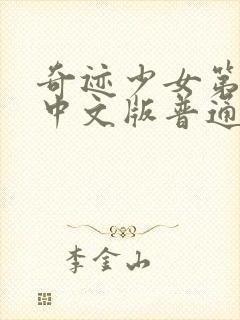 奇迹少女第
中文版普通
李金山